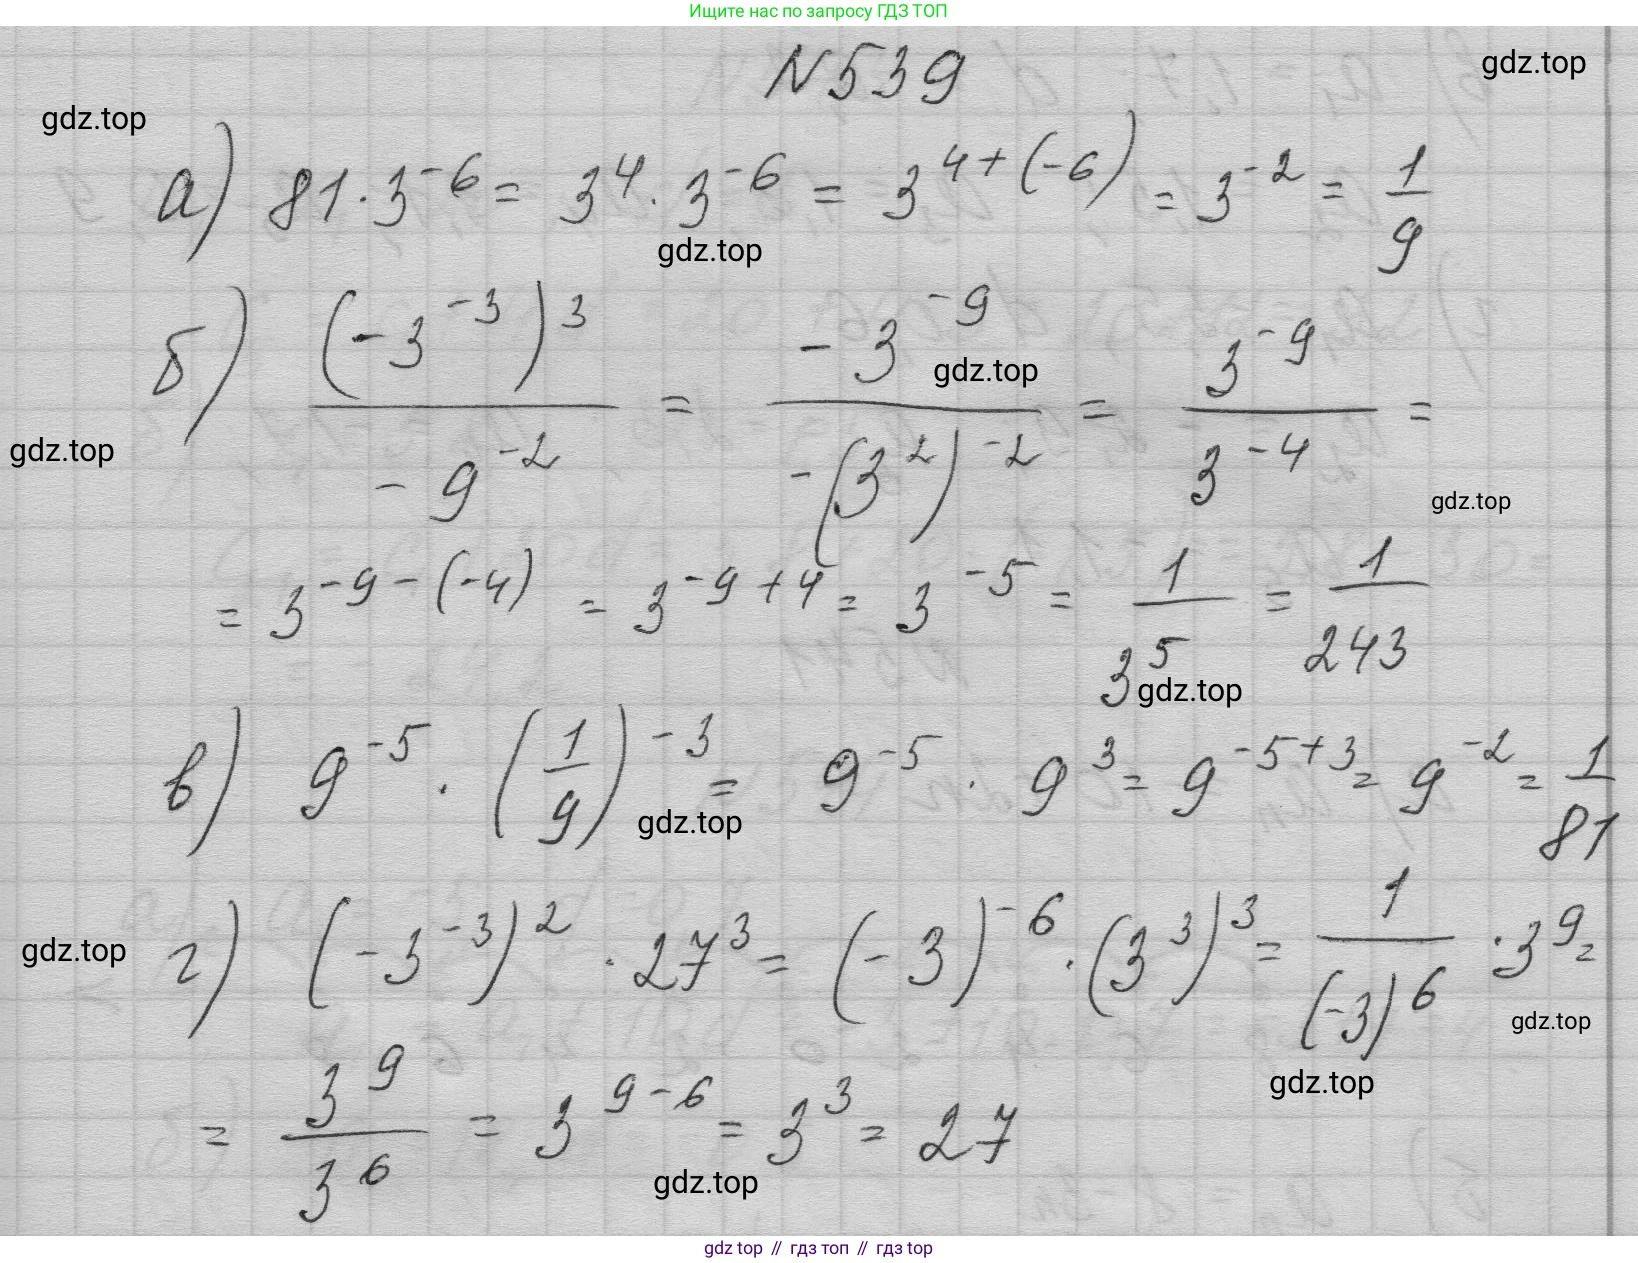 Ищите нас по запросу ГДЗ ТОП
N539
gdz.top
gdz.top
а) 81 · 3^{-6} = 3^4 · 3^{-6} = 3^{4+(-6)} = 3^{-2} = 1/9
gdz.top
б) (-3^{-3})^3 / -9^{-2} = -3^{-9} / -(3^2)^{-2} = 3^{-9} / 3^{-4} =
gdz.top
gdz.top
gdz.top
= 3^{-9-(-4)} = 3^{-9+4} = 3^{-5} = 1/3^5 = 1/243
gdz.top
в) 9^{-5} · (1/9)^{-3} = 9^{-5} · 9^3 = 9^{-5+3} = 9^{-2} = 1/81
gdz.top
г) (-3^{-3})^2 · 27^3 = (-3)^{-6} · (3^3)^3 = 1/(-3)^6 · 3^9 =
gdz.top
gdz.top
gdz.top
= 3^9/3^6 = 3^{9-6} = 3^3 = 27
gdz.top
gdz top // гдз топ // гдз top